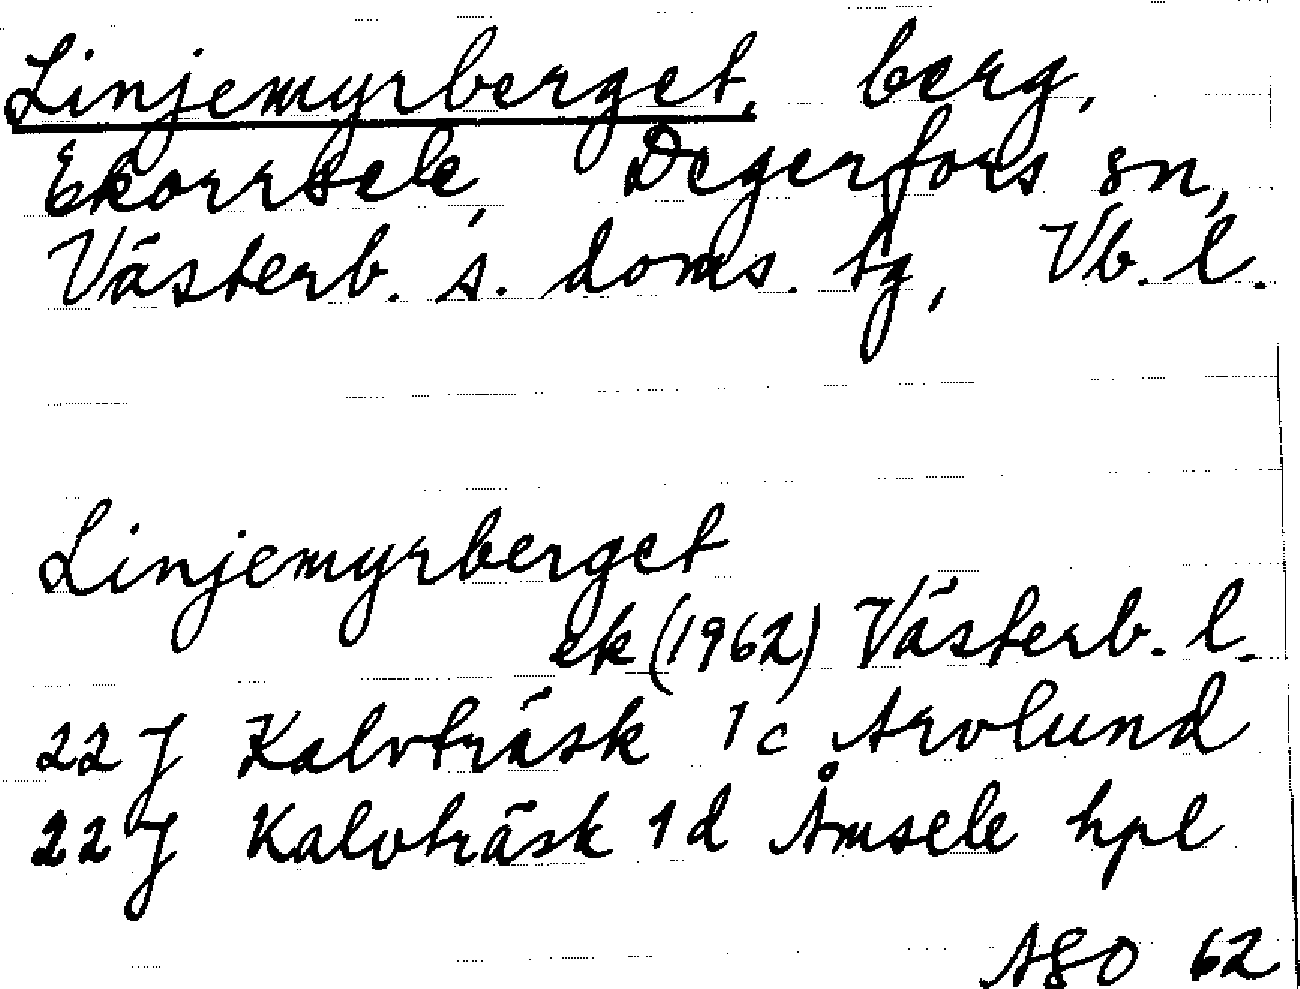 Linjemyrberget, berg,
Ekorrsele, Degerfors sn,
Västerb. s. doms. tg, Vb. l.
Linjemyrberget
ek (1962) Västerb. l.
22 J Kalvträsk 1 c Arvlund
22 J Kalvträsk 1 d Åmsele hpl
ASO 62